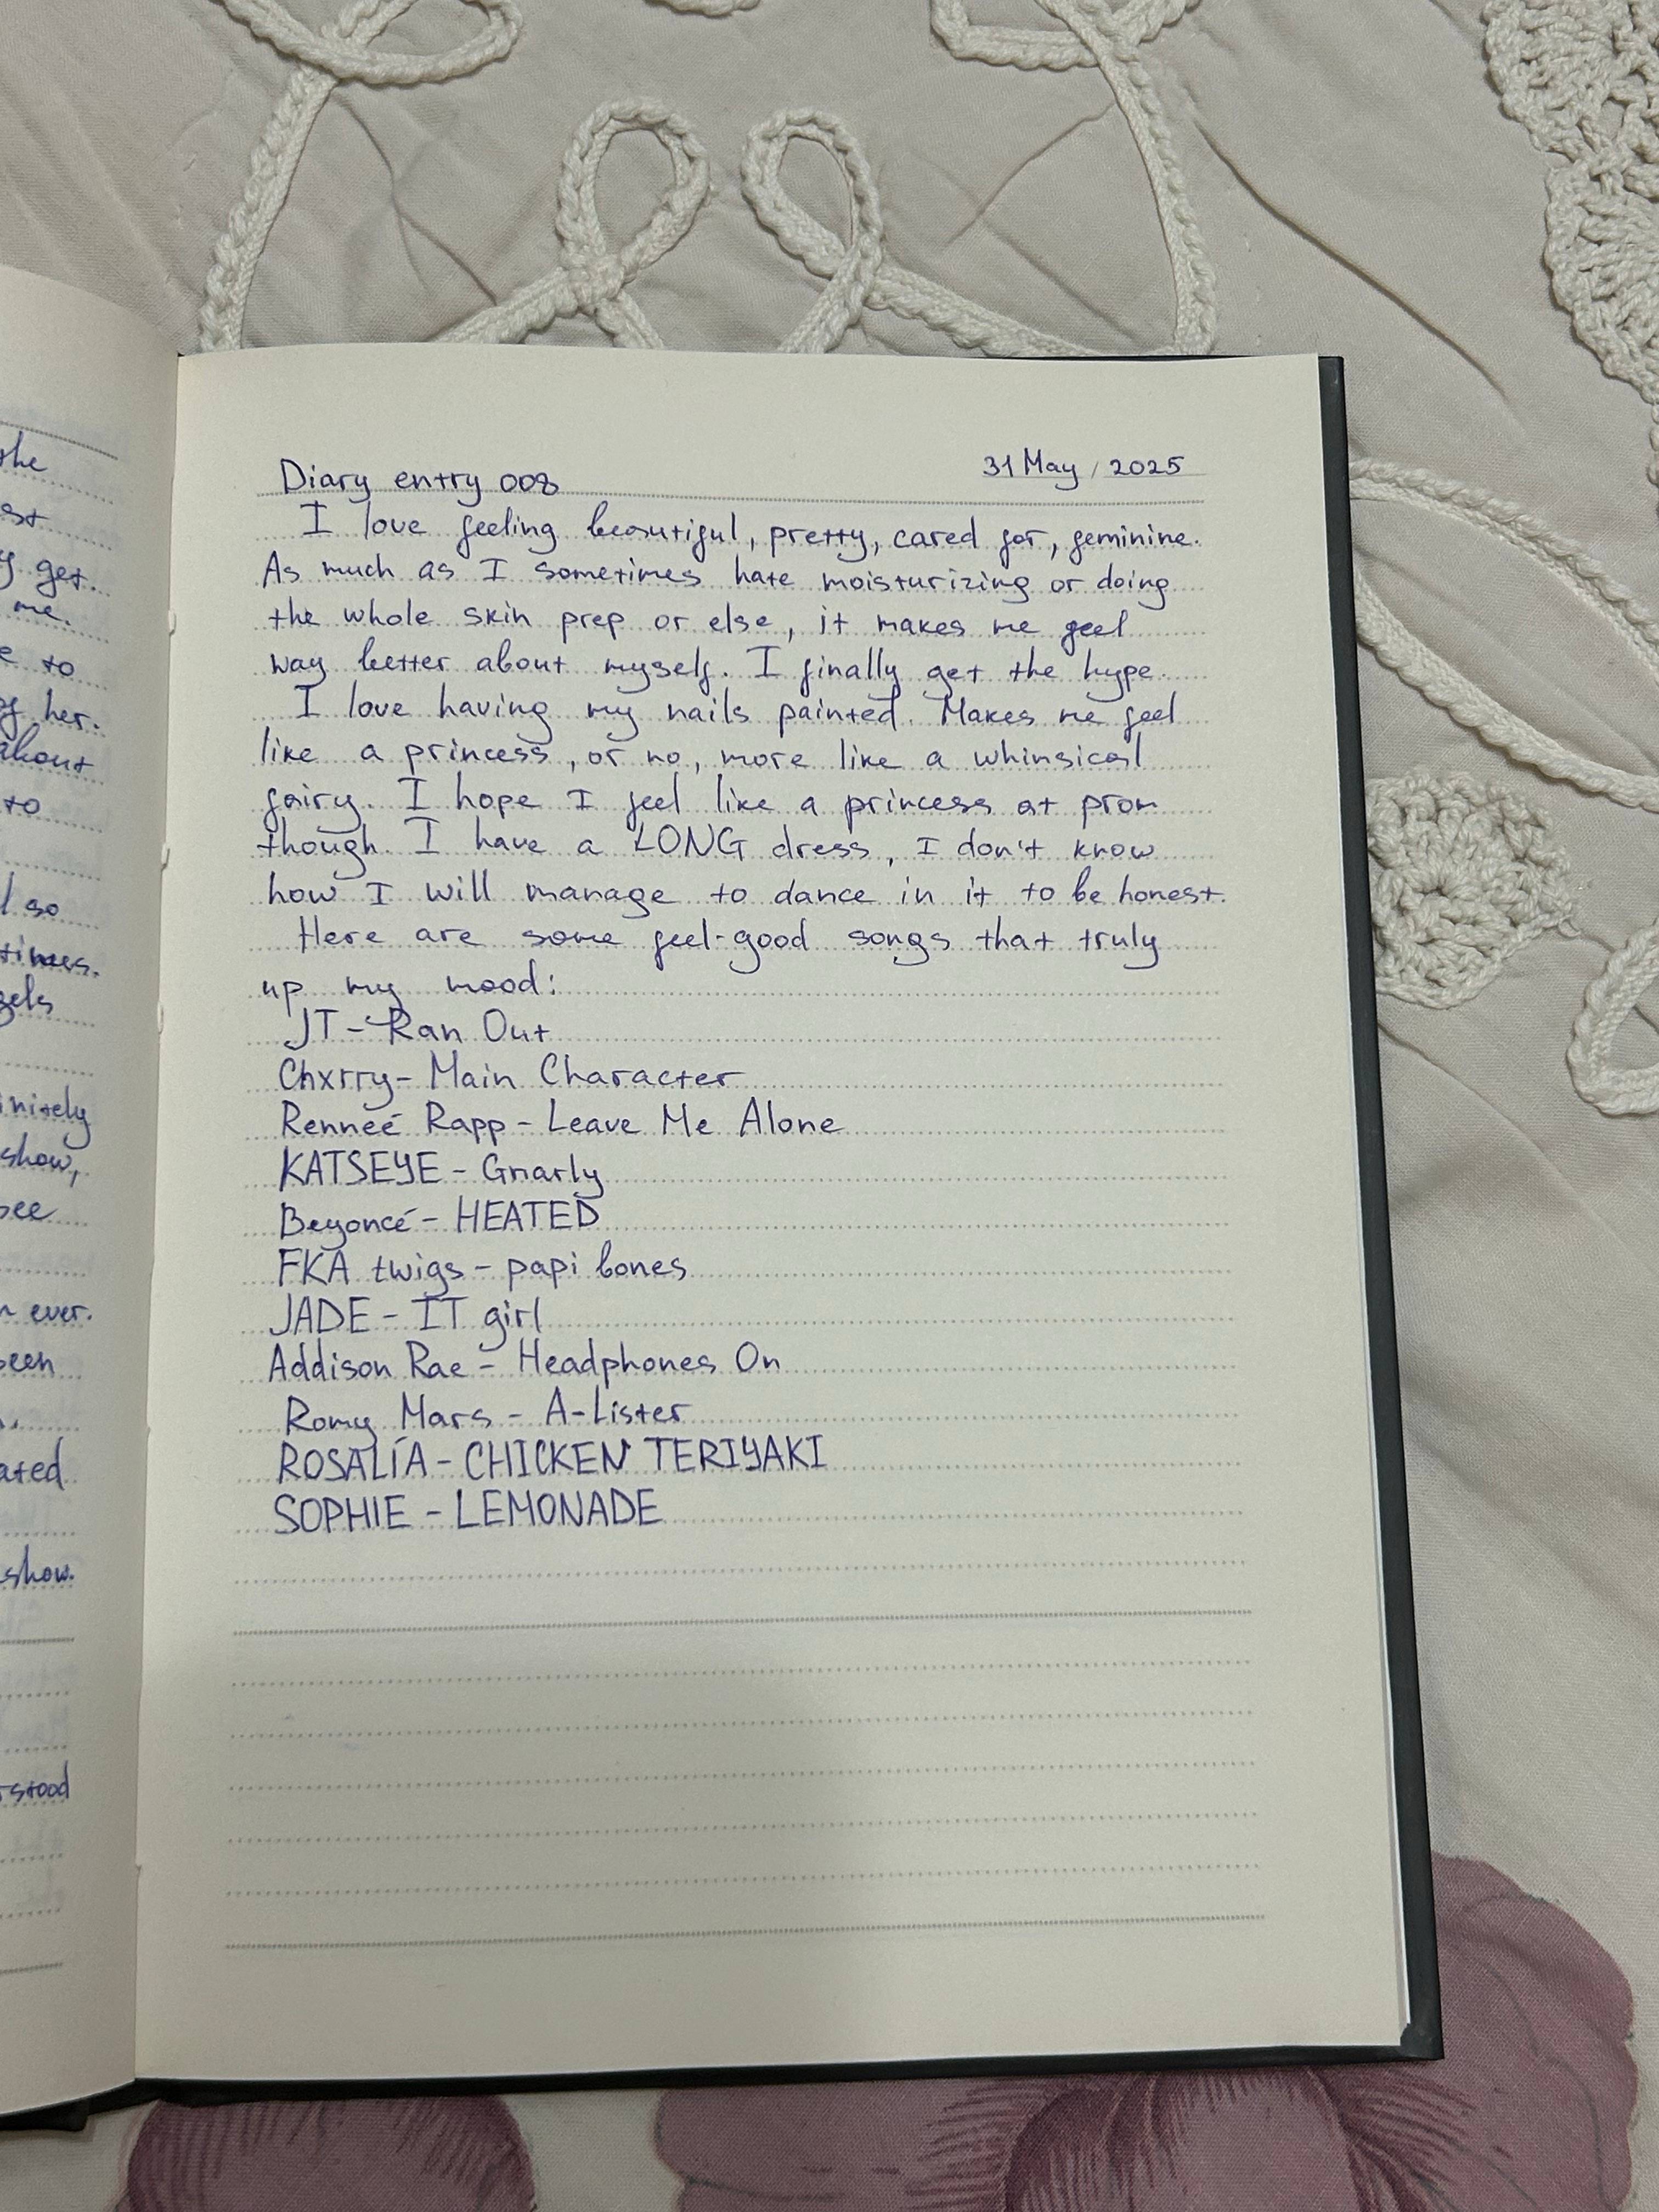 the
st
y get.
me.
e to
of her.
about
to
l so
times.
gels
initely
show,
see
n ever.
been
ated
show.
rstood
Diary entry 008
31 May / 2025
I love feeling beautiful, pretty, cared for, feminine.
As much as I sometimes hate moisturizing or doing
the whole skin prep or else, it makes me feel
way better about myself. I finally get the hype.
I love having my nails painted. Makes me feel
like a princess, or no, more like a whimsical
fairy. I hope I feel like a princess at prom
though. I have a LONG dress, I don't know
how I will manage to dance in it to be honest.
Here are some feel-good songs that truly
up my mood:
JT - Ran Out
Chxrry - Main Character
Renneé Rapp - Leave Me Alone
KATSEYE - Gnarly
Beyoncé - HEATED
FKA twigs - papi bones
JADE - IT girl
Addison Rae - Headphones On
Romy Mars - A-Lister
ROSALÍA - CHICKEN TERIYAKI
SOPHIE - LEMONADE